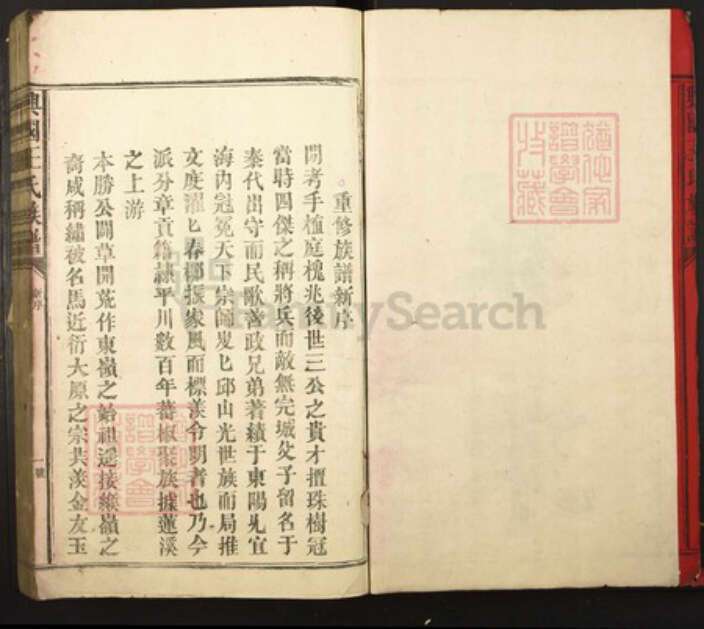 重修族譜新序
聞考手植庭槐兆後世三公之貴才擅珠樹冠
當時四傑之稱將兵而敵無完城父子留名于
秦代出守而民歌善政兄弟著績于東陽允宜
海內冠冕天下宗師岌岌邱山光世族而局推
文度濯濯春柳振家風而標羨令明者也乃今
派分章貢籍隸平川數百年蕃椒聚族據蓮溪
之上游
本勝公闢草開荒作東嶺之始祖遥接緱嶺之
裔咸稱繡被名馬近衍太原之宗共羨金友玉
興國王氏族譜
新序
一號
譜學會
收藏
Search